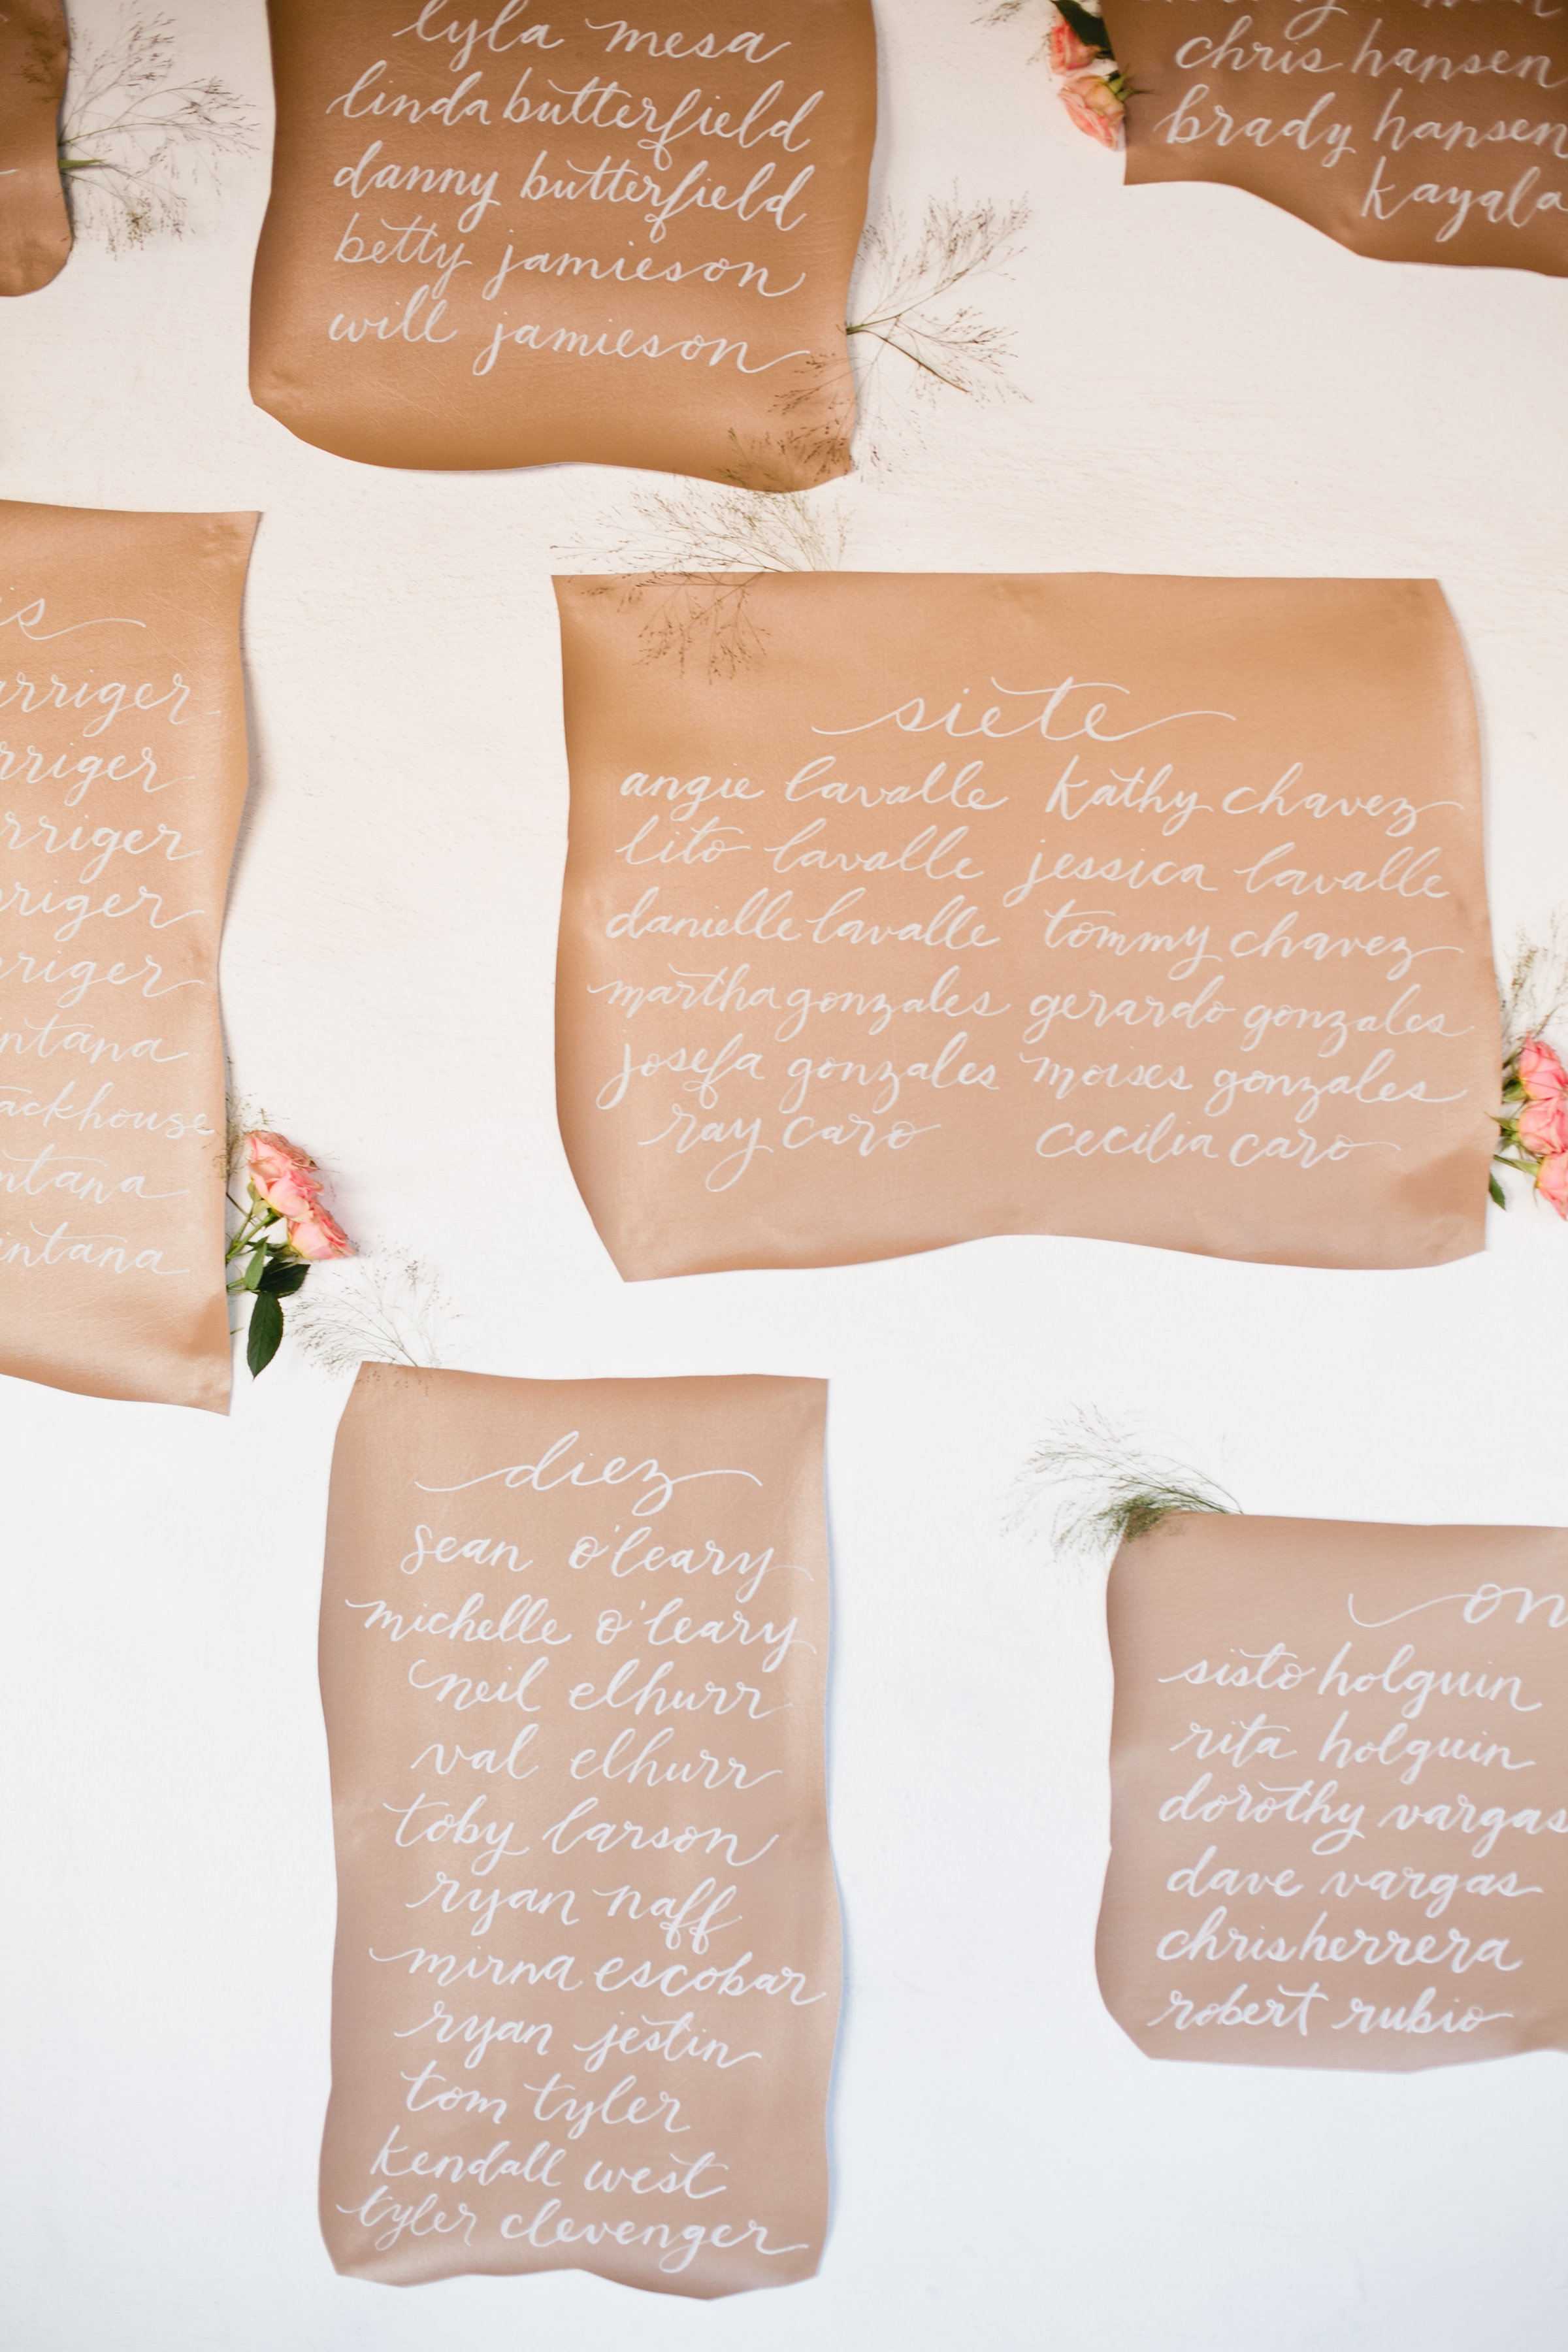 lyla mesa
linda butterfield
danny butterfield
betty jamieson
will jamieson
chris hansen
brady hansen
kayala
is
arriger
rriger
rriger
rriger
rriger
ntana
ackhouse
ntana
intana
siete
angie lavalle kathy chavez
lito lavalle jessica lavalle
danielle lavalle tommy chavez
martha gonzales gerardo gonzales
josefa gonzales moises gonzales
ray caro cecilia caro
diez
sean o'leary
michelle o'leary
neil elhurr
val elhurr
toby larson
ryan naff
mirna escobar
ryan jestin
tom tyler
kendall west
tyler clevenger
on
sisto holguin
rita holguin
dorothy vargas
dave vargas
chris herrera
robert rubio